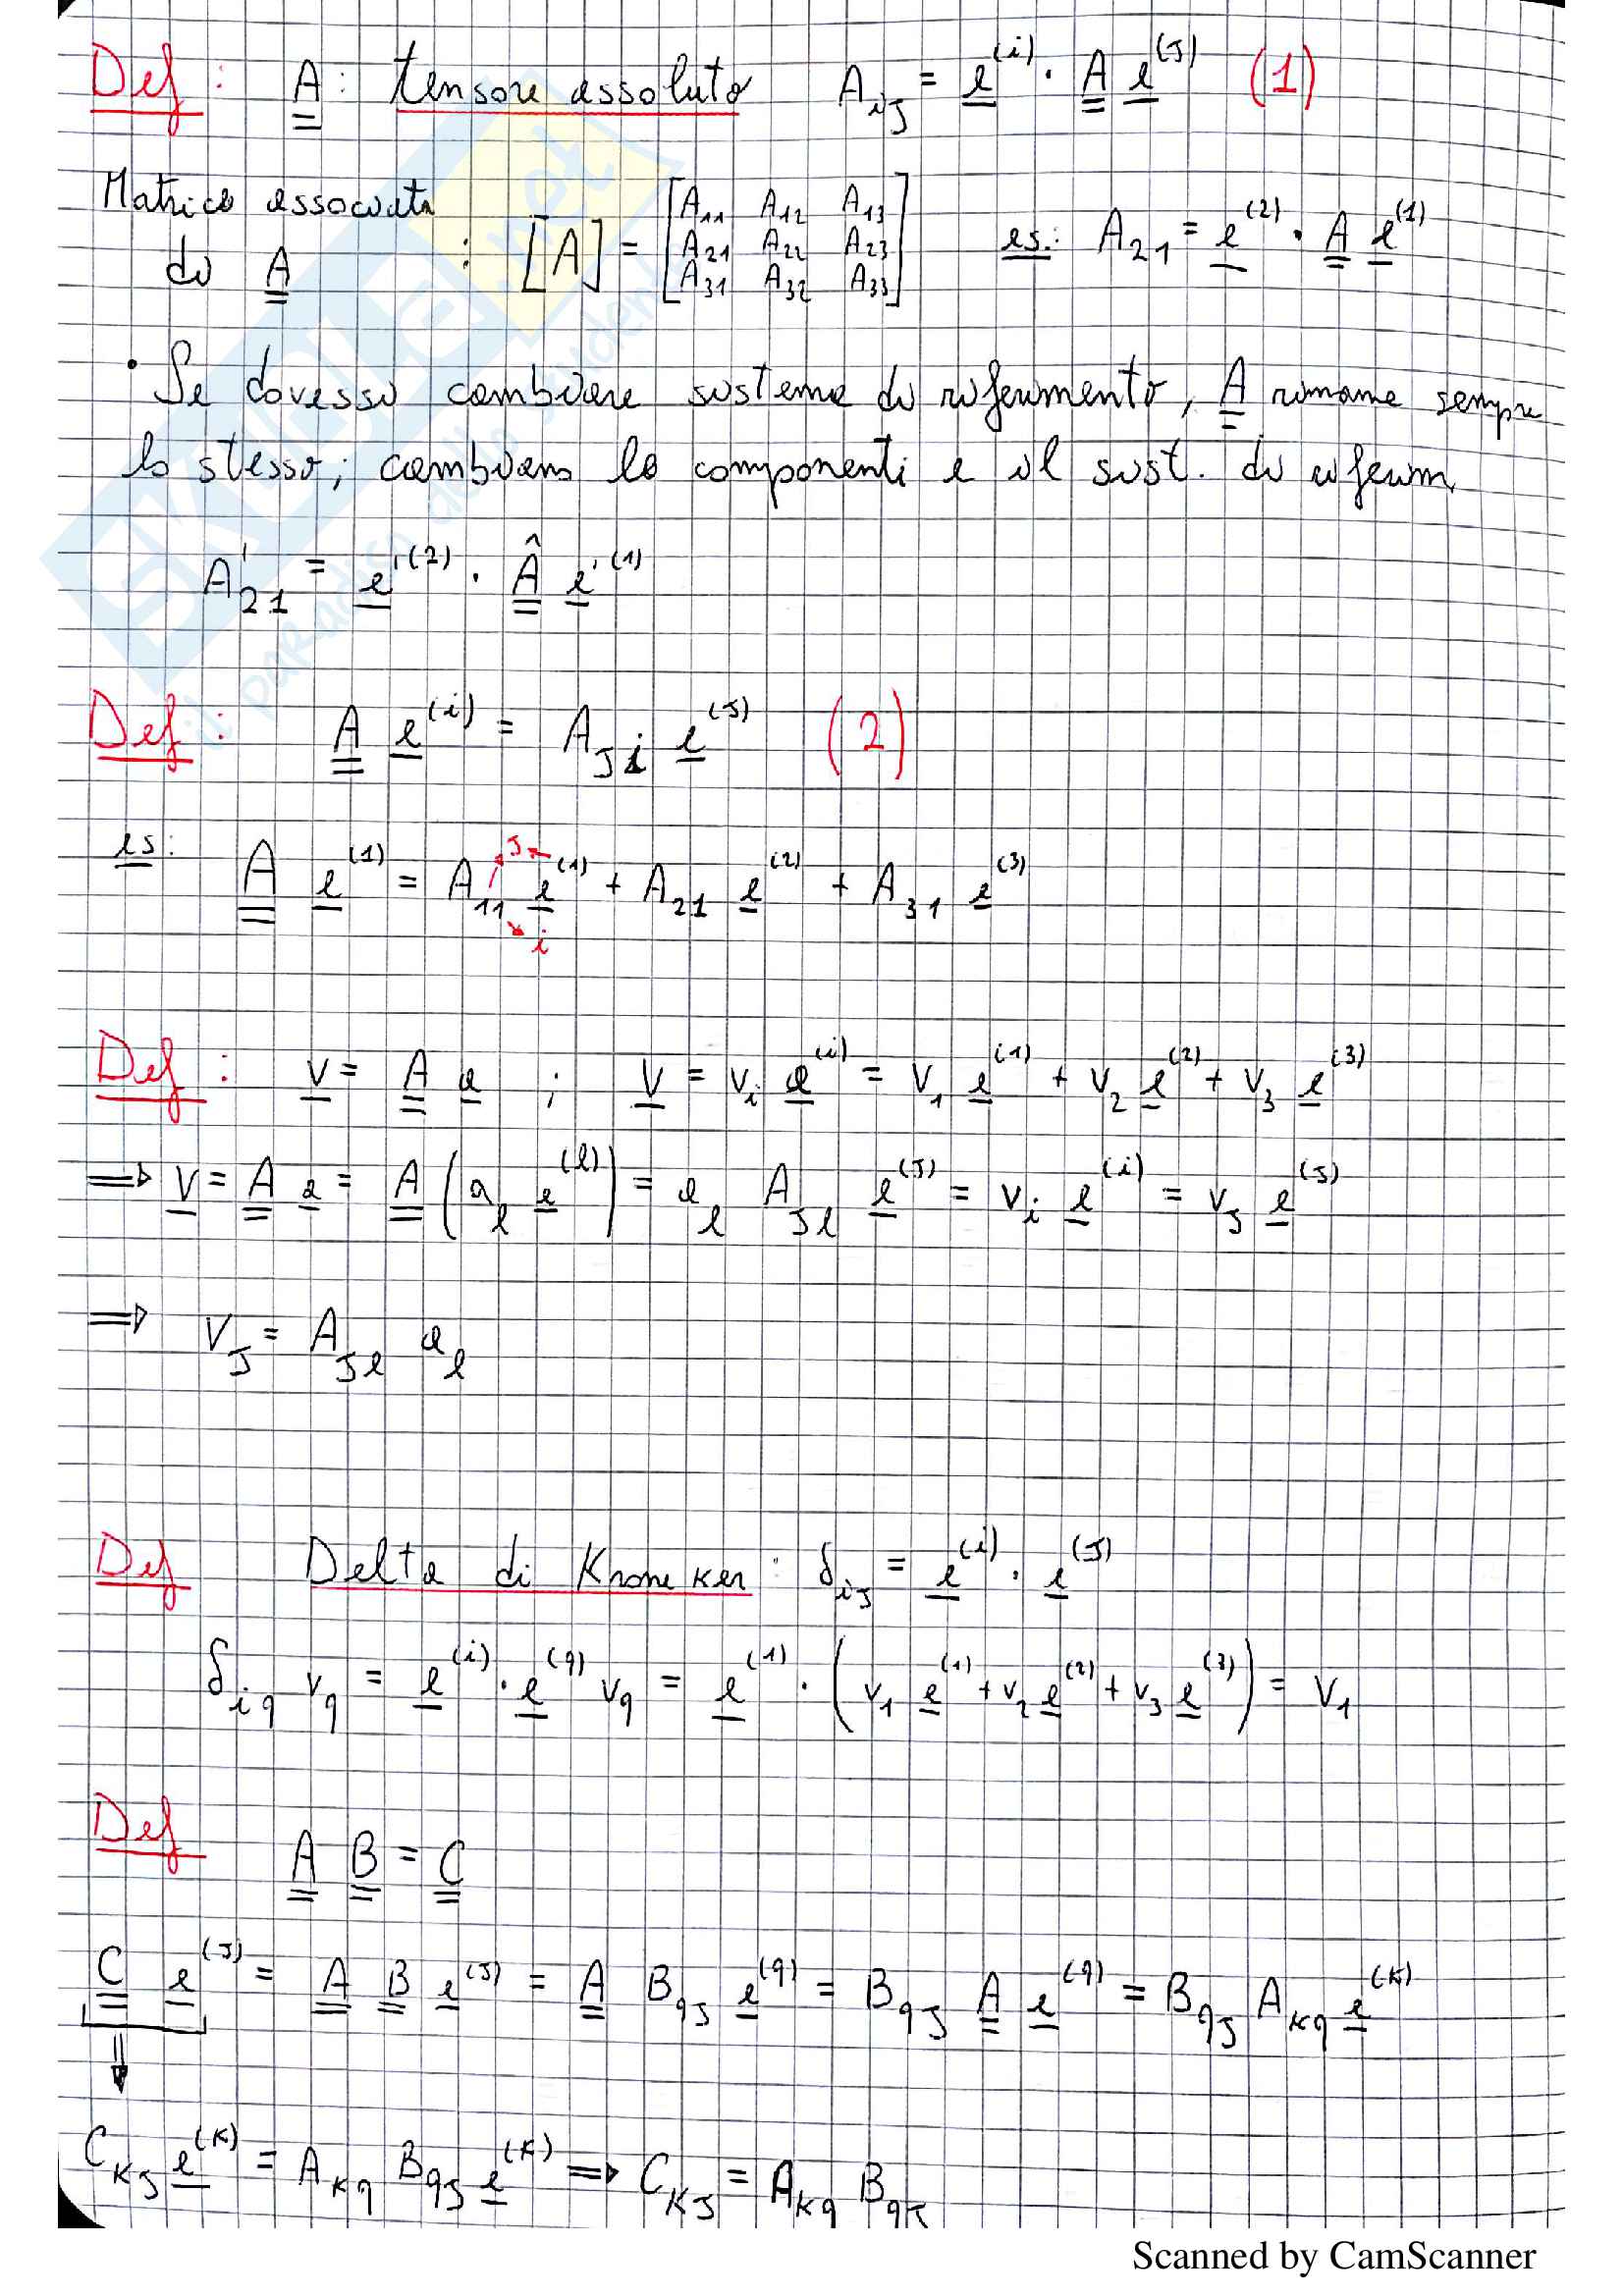 Def: A: tensore assoluto A_ij = e^(i) · A e^(J) (1)
Matrice associata
di A : [A] = [A11 A12 A13
A21 A22 A23
A31 A32 A33] es.: A21 = e^(2) · A e^(1)
• Se dovessi cambiare sistema di riferimento, A rimane sempre
lo stesso; cambiano le componenti e il sist. di riferim.
A'21 = e'^(2) · Â e'^(1)
Def: A e^(i) = A_Ji e^(J) (2)
es: A e^(1) = A11 e^(1) + A21 e^(2) + A31 e^(3)
J
i
Def: v = A a ; v = v_i e^(i) = v1 e^(1) + v2 e^(2) + v3 e^(3)
⇒ v = A a = A (a_l e^(l)) = a_l A_Jl e^(J) = v_i e^(i) = v_J e^(J)
⇒ v_J = A_Jl a_l
Def Delta di Kroneker: δ_iJ = e^(i) · e^(J)
δ_iq v_q = e^(i) · e^(q) v_q = e^(1) · (v1 e^(1) + v2 e^(2) + v3 e^(3)) = v1
Def
A B = C
C e^(J) = A B e^(J) = A B_qJ e^(q) = B_qJ A e^(q) = B_qJ A_kq e^(k)
⇓
C_kJ e^(k) = A_kq B_qJ e^(k) ⇒ C_kJ = A_kq B_qJ
SKUOLA.net
il paradiso dello studente
Scanned by CamScanner